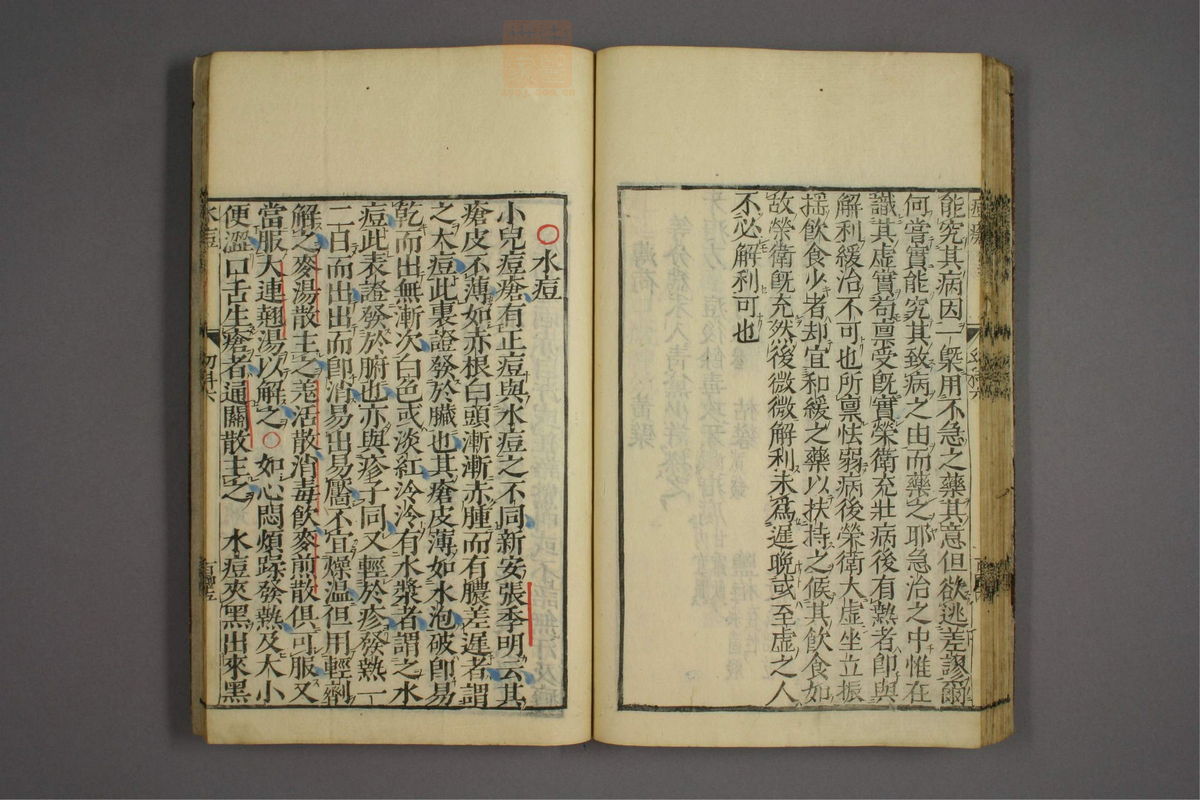 能究其病因一槩用不急之藥其意但欲逃差謬爾
何嘗實能究其致病之由而藥之耶急治之中惟在
識其虛實苟禀受旣實榮衛充壯病後有熱者卽與
解利緩治不可也所禀怯弱病後榮衛大虛坐立振
揺飲食少者却宜和緩之藥以扶持之候其飲食如
故榮衛旣充然後微微解利未爲遲晩或至虛之人
不必解利可也
○水痘
小兒痘瘡有正痘與水痘之不同新安張季明云其
瘡皮不薄如赤根白頭漸漸赤腫而有膿差遲者謂
之大痘此裏證發於臟也其瘡皮薄如水泡破卽易
乾而出無漸次白色或淡紅泠泠有水漿者謂之水
痘此表證發於腑也亦與疹子同又輕於疹發熱一
二日而出出而卽消易出易靨不宜燥温但用輕劑
解之麥湯散主之羗活散消毒飲麥煎散俱可服又
當服大連翹湯以解之○如心悶煩躁發熱及大小
便澀口舌生瘡者通關散主之 水痘夾黑出來黑
水痘
幼科六